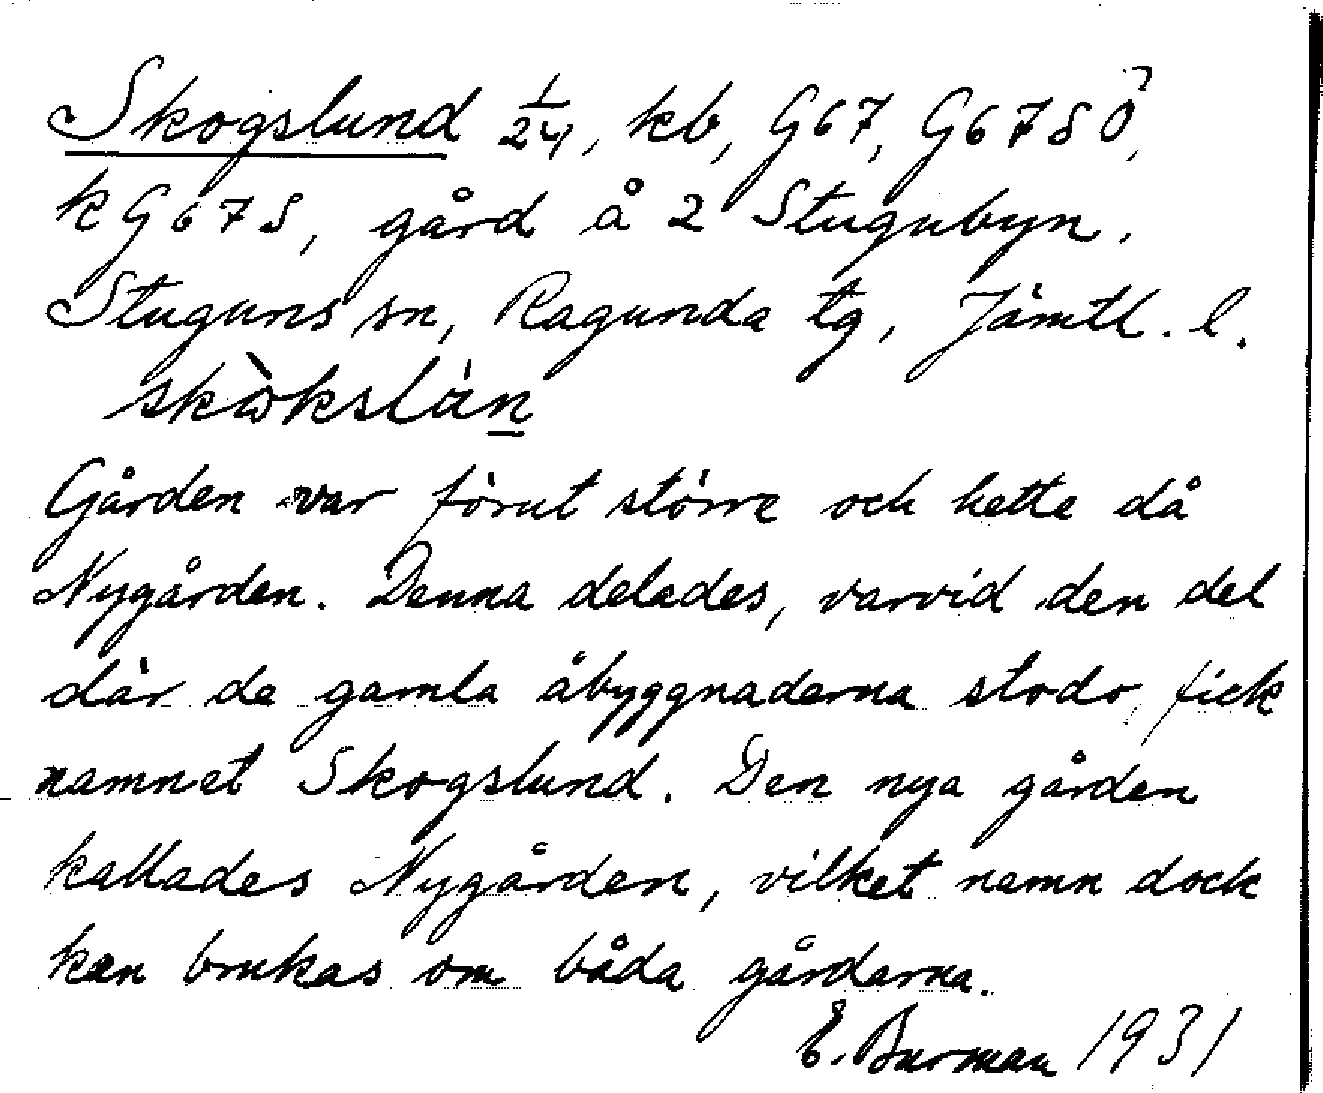 Skogslund 1/24, kb, G67, G67SÖ,
kG67S, gård å 2 Stugubyn.
Stuguns sn, Ragunda tg, Jämtl. l.
skòkslán
Gården var förut större och hette då
Nygården. Denna delades, varvid den del
där de gamla åbyggnaderna stodo, fick
namnet Skogslund. Den nya gården
kallades Nygården, vilket namn dock
kan brukas om båda gårdarna.
E. Burman 1931